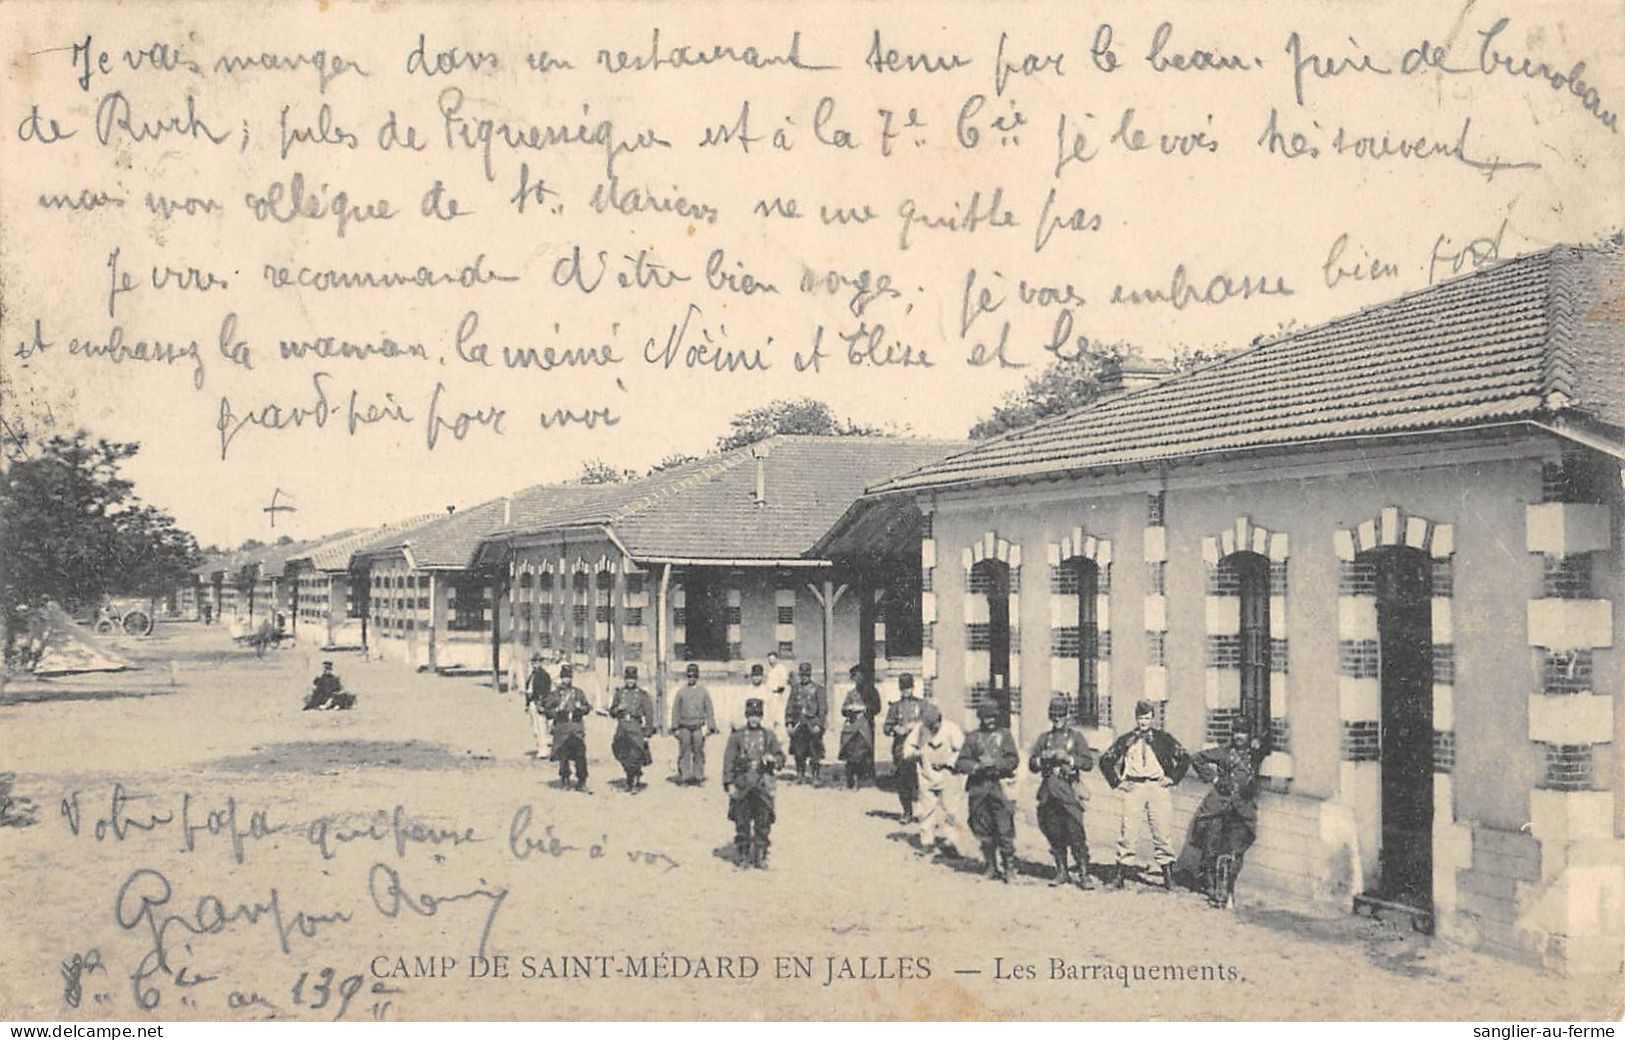 Je vais manger dans un restaurant tenu par le beau. père de
de Ruch ; jules de Piquessègue est à la 7e Cie je le vois très souvent
mais mon collégue de St. Mariens ne me quitte pas.
Je vous recommande d'être bien sages, je vous embrasse bien fort
et embrassez la maman, la mémé Noémi et Elise et le
grand-père pour moi
Votre papa qui pense bien à vous
Rémy
8e Cie au 139e
CAMP DE SAINT-MÉDARD EN JALLES — Les Barraquements.
sanglier-au-ferme